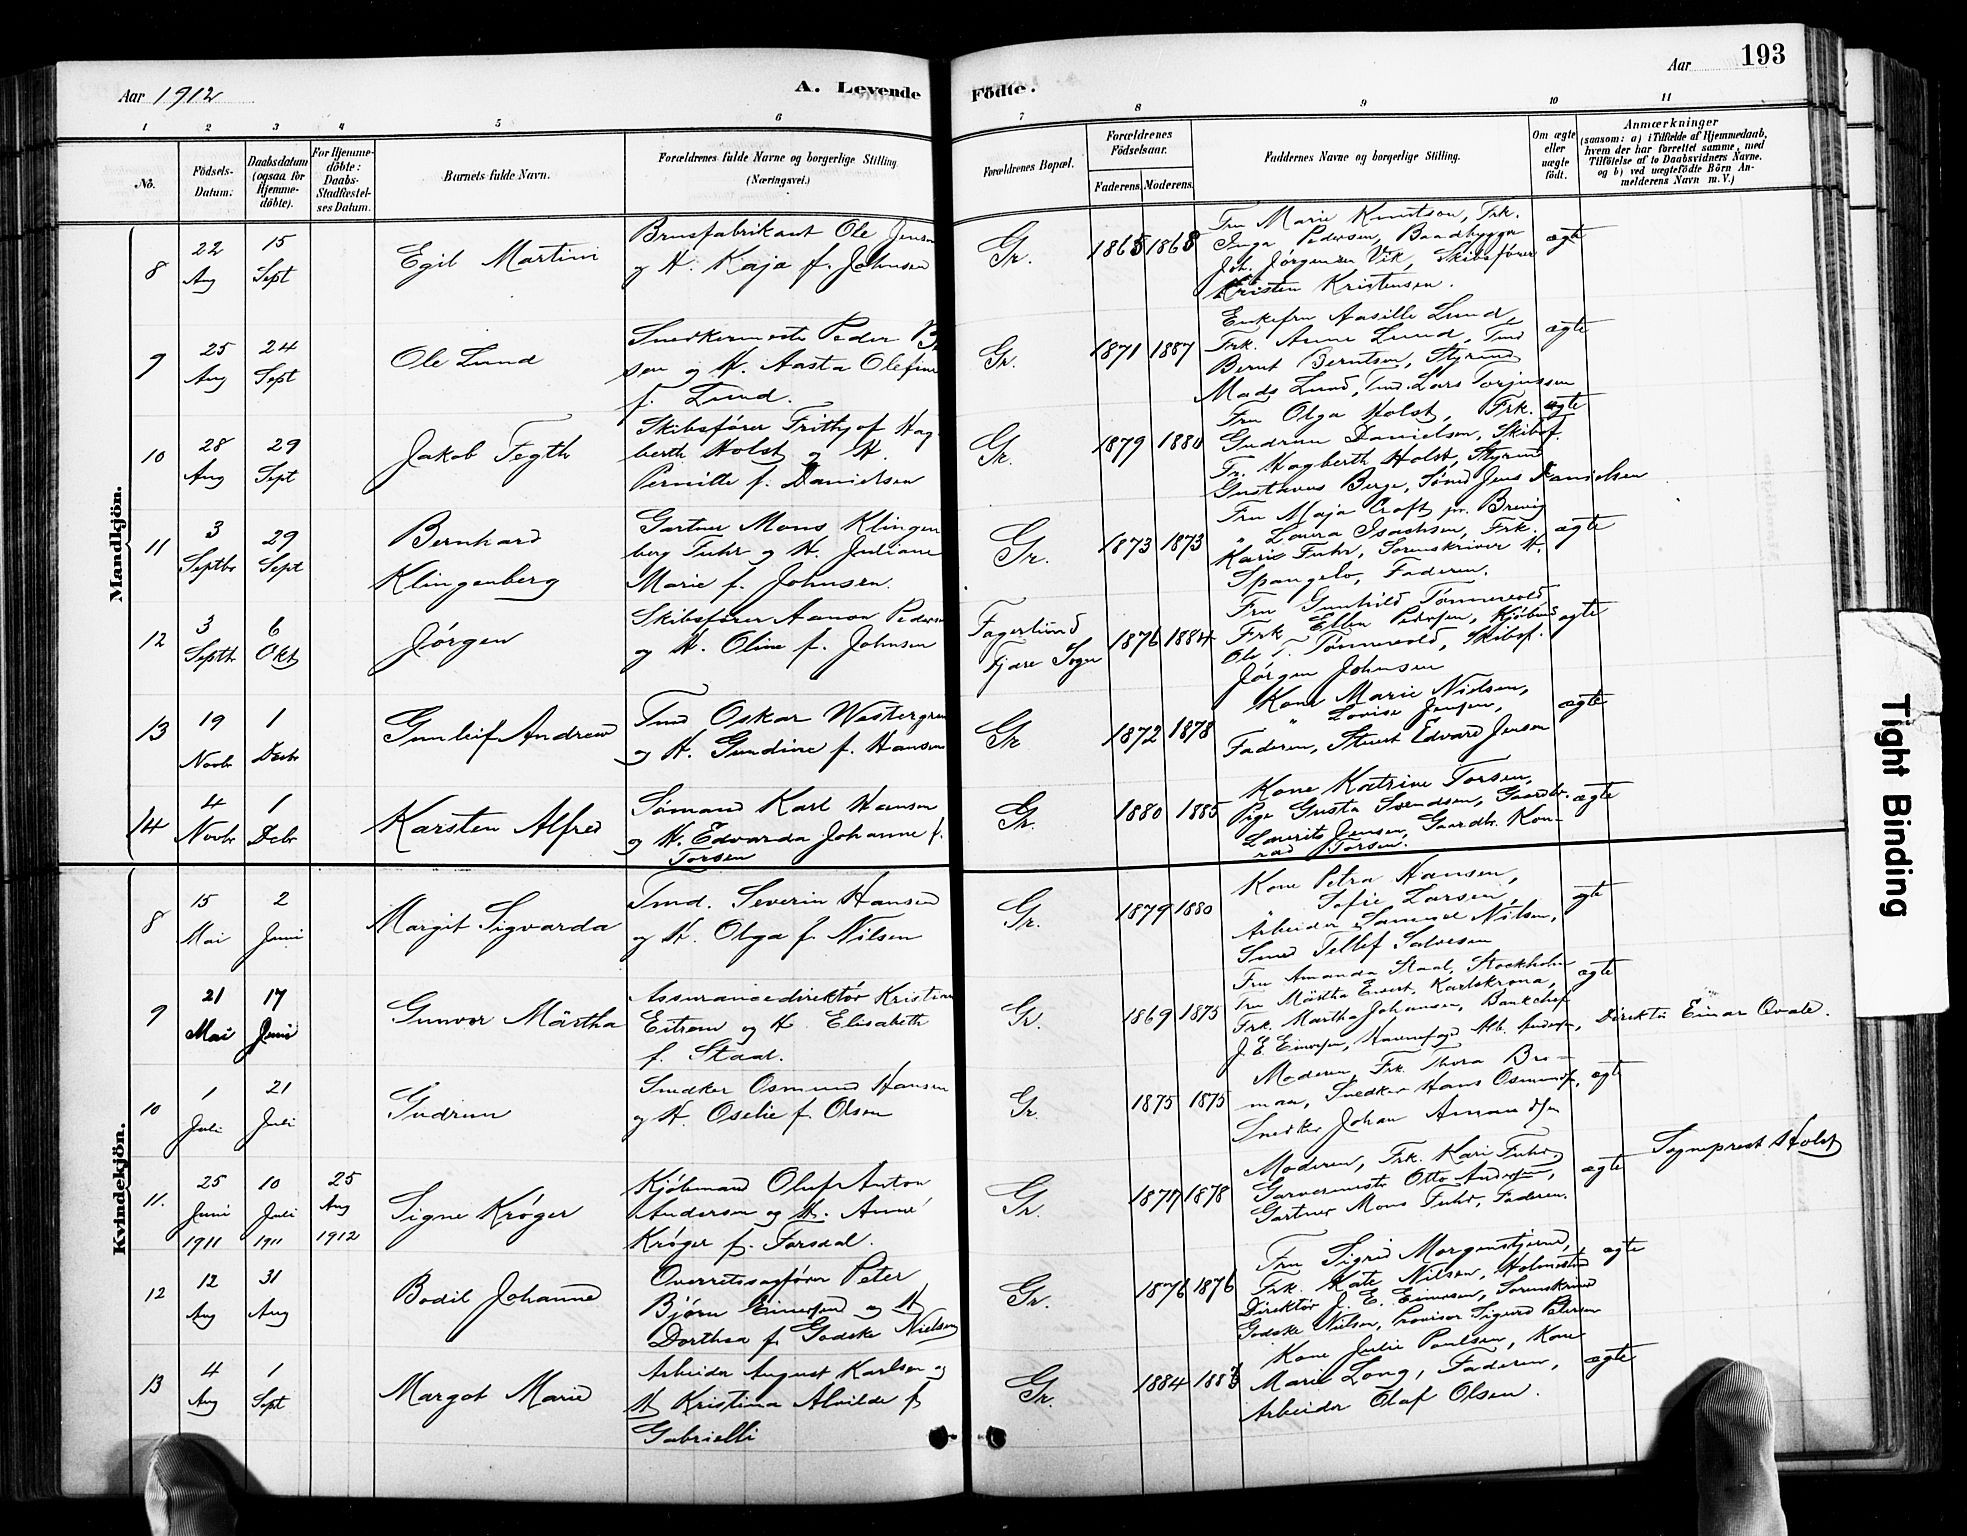 193
Aar 1912
A. Levende
Födte.
Aar
1 2 3 4 5 6 7 8 9 10 11
No.
Födsels-
Datum.
Daabsdatum
(ogsaa for
Hjemme-
döbte).
For Hjemme-
döbte:
Daabs-
Stadfæstel-
ses Datum.
Barnets fulde Navn.
Forældrenes fulde Navne og borgerlige Stilling
(Næringsvei.)
Forældrenes Bopæl.
Forældrenes
Födselsaar.
Faderens. Moderens.
Faddernes Navne og borgerlige Stilling.
Om ægte
eller
uægte
födt.
Anmærkninger
(saasom: a) i Tilfælde af Hjemmedaab,
hvem der har forrettet samme, med
Tilföielse af to Daabsvidners Navne.
og b) ved uægtefödte Börn An-
melderens Navn m. V.)
Mandkjön.
8
22
Aug
15
Sept
Egil Martini
Brusfabrikant Ole Jensen
og H. Kaja f. Johnsen
Gr.
1865 1868
Fru Marie Knutson, Frk.
Inga Pedersen, Baadbygger
Joh. Jørgensen Vik, Skibsfører
Kristen Kristensen.
ægte
9
25
Aug
24
Sept
Ole Lund
Snedkermester Peder
sen og H. Aasta Olefine
f. Lund.
Gr.
1871 1887
Enkefru Aasille Lund,
Frk. Anne Lund, Tmd
Bernt Berntsen, Styrmd
Mads Lund, Tmd. Lars Torjussen
ægte
10
28
Aug
29
Sept
Jakob Tegth
Skibsfører Frithjof Hag-
berth Holst og H.
Pernille f. Danielsen
Gr.
1879 1880
Fru Olga Holst, Frk.
Gudrun Danielsen, Skibsf.
Fr. Hagberth Holst, Styrmd
Gustavus Berge, Sømd Jens Danielsen
ægte
11
3
Septbr
29
Sept
Bernhard
Klingenberg
Gartner Mons Klingen
berg Fuhr og H. Juliane
Marie f. Johnsen.
Gr.
1873 1873
Fru Maja Croft, Brevig
" Laura Isachsen, Frk.
Kari Fuhr, Sorenskriver H.
Spangelo, Faderen.
ægte
12
3
Septbr
6
Okt
Jørgen
Skibsfører Aanon Pedersen
og H. Oline f. Johnsen
Fagerlund
Fjære Sogn
1876 1884
Fru Gunhild Tønnevold
Frk Ellen Pedersen, Kjøbmd
Ole T. Tønnevold, Skibsf.
Jørgen Johnsen
ægte
13
19
Novbr
1
Decbr
Gunleif Andrew
Tmd Oskar Westergren
og H. Gundine f. Hansen
Gr
1872 1878
Kone Marie Nielsen,
" Lovise Jensen,
Faderen, Stuert Edvard Jensen
ægte
14
4
Novbr
1
Debr
Karsten Alfred
Sømand Karl Hansen
og H. Edvarda Johanne f.
Torsen
Gr.
1880 1885
Kone Katrine Torsen,
Pige Gusta Svendsen, Gaardbr.
Lauritz Jensen, Gaardbr. Kon-
rad Torsen.
ægte
Kvindekjön.
8
15
Mai
2
Juni
Margit Sigvarda
Tmd. Severin Hansen
og H. Olga f. Nilsen
Gr.
1879 1880
Kone Petra Hansen,
" Sofie Larsen,
Arbeider Samuel Nilsen,
Smed Tellef Salvesen
ægte
9
21
Mai
17
Juni
Gunvor Märtha
Assurancedirektør Kristian
Eitrem og H. Elisabeth
f. Staal.
Gr.
1869 1875
Fru Amanda Staal, Stockholm
Fru Märtha Ewert, Karlskrona,
Frk. Martha Johansen, Bankchef
J. E. Eimersen, Havnefogd Alb. Andersen, Direktør Einar Qvale.
ægte
10
1
Juli
21
Juli
Gudrun
Snedker Osmund Hansen
og H. Oselie f. Olsen
Gr.
1875 1875
Moderen, Frk. Thora Bro-
maa, Snedker Hans Osmunds.,
Snedker Johan Amundsen
ægte
11.
25
Juni
1911
10
Juli
1911
25
Aug
1912
Signe Krøger
Kjøbmand Oluf Anton
Andersen og H. Anne
Krøger f. Forsdal.
Gr.
1877 1878
Moderen, Frk. Kari Fuhr,
Garvermester Otto Andersen,
Gartner Mons Fuhr, Faderen.
ægte
Sogneprest Holst
12
12
Aug
31
Aug
Bodil Johanne
Overretssagfører Peter
Bjørn Eimersen og H
Dorthea f. Godske Nielsen
Gr.
1876 1876
Fru Sigrid Morgenstjerne,
Frk. Käte Nilsen, Holmestd
Direktør J. E. Eimersen, Sorenskriver
Godske Nielsen, Provisor Sigurd Petersen
ægte
13
4
Aug
1
Sept
Margot Marie
Arbeider August Karlsen og
H Kristina Alvilde f
Gabrielli
Gr.
1884 1883
Kone Julie Paulsen, Kone
Marie Long, Faderen,
Arbeider Olaf Olsen.
ægte
Tight Binding